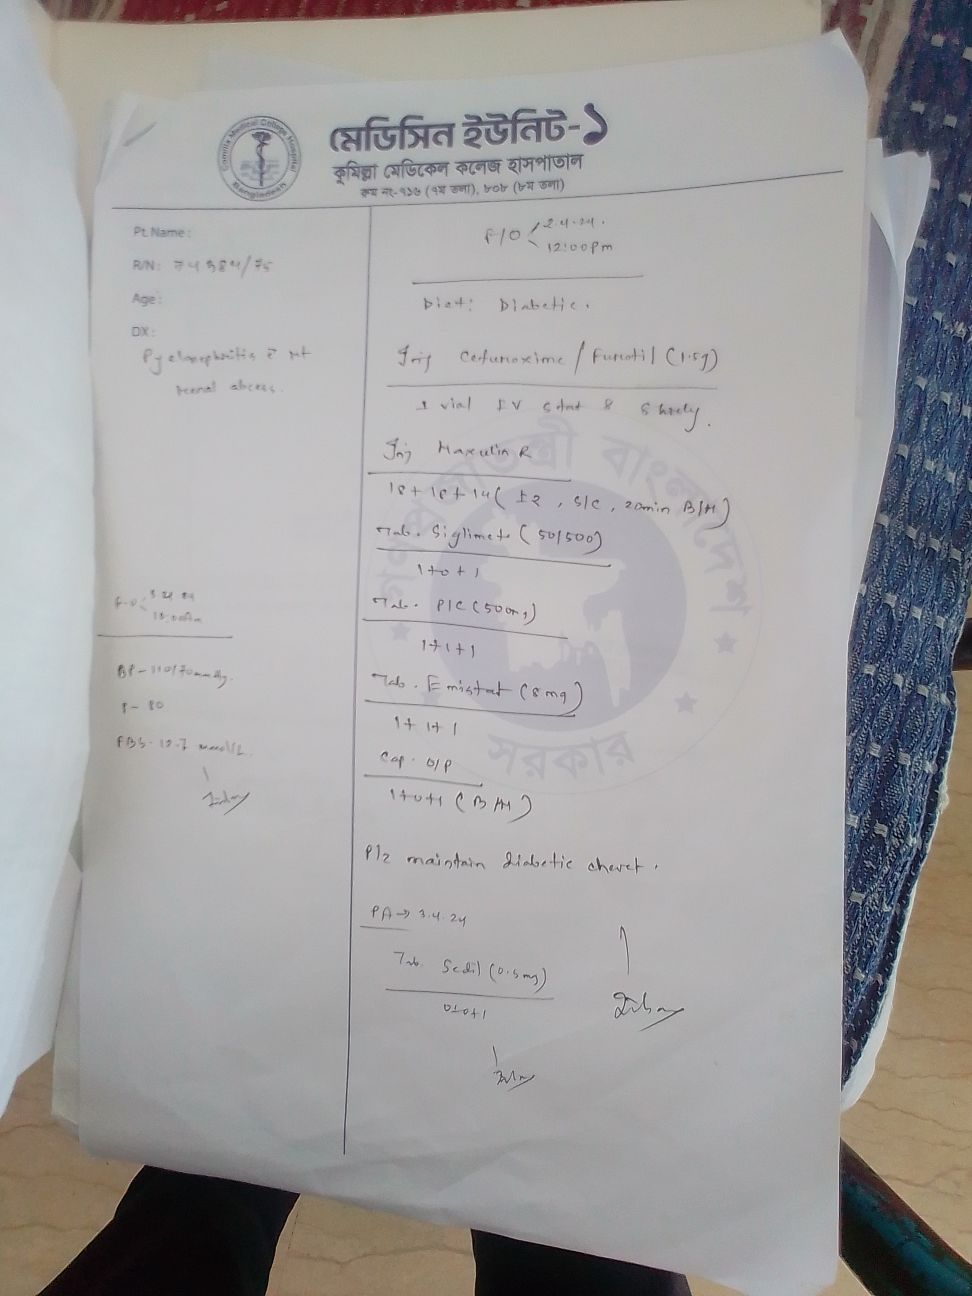 Comilla Medical College Hospital
Bangladesh
মেডিসিন ইউনিট-১
কুমিল্লা মেডিকেল কলেজ হাসপাতাল
রুম নং-৭১৬ (৭ম তলা), ৮০৮ (৮ম তলা)
Pt. Name :
R/N:
Age :
DX :
Pyelonephritis
renal abcess.
BP - 110/70 mmHg.
P - 80
F/O
2.4.24.
12:00pm
Diet: Diabetic.
Inj Cefuroxime / Furotil (1.5g)
1 vial IV stat & 8 hrely.
Inj Maxulin R
18+18+14 ( , S/C, 20min B/M)
Tab. Siglimet (50/500)
1+0+1
Tab. P/C (500mg)
1+1+1
Tab. Emistat (8mg)
1+1+1
Cap. O/P
1+0+1 (B/M)
Plz maintain diabetic
PA → 3.4.24
Tab. Sedil (0.5mg)
0+0+1
গণপ্রজাতন্ত্রী বাংলাদেশ
সরকার